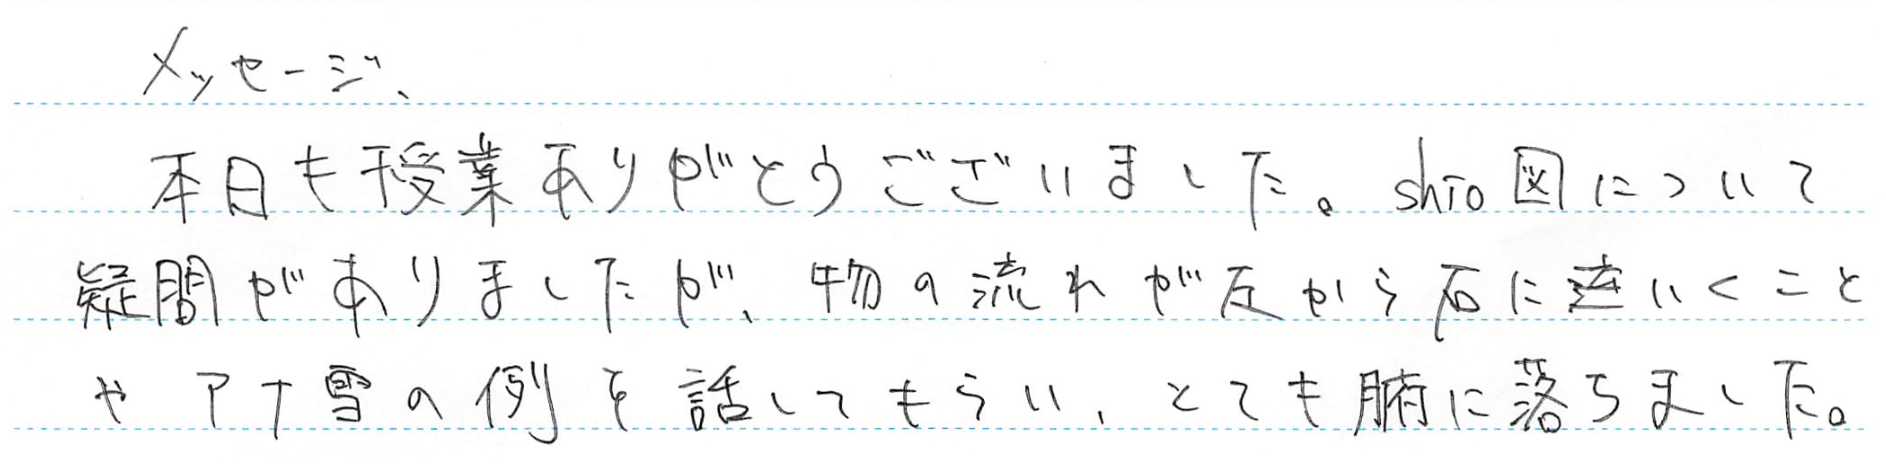 メッセージ、
本日も授業ありがとうございました。shio図について
疑問がありましたが、物の流れが左から右にいくこと
やアナ雪の例を話してもらい、とても腑に落ちました。